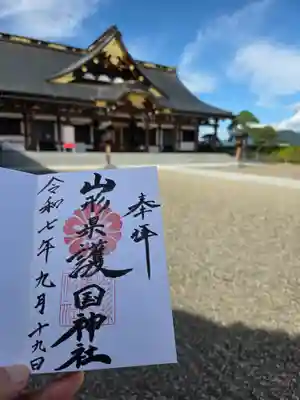 奉拝
山形県護国神社
令和七年九月十九日